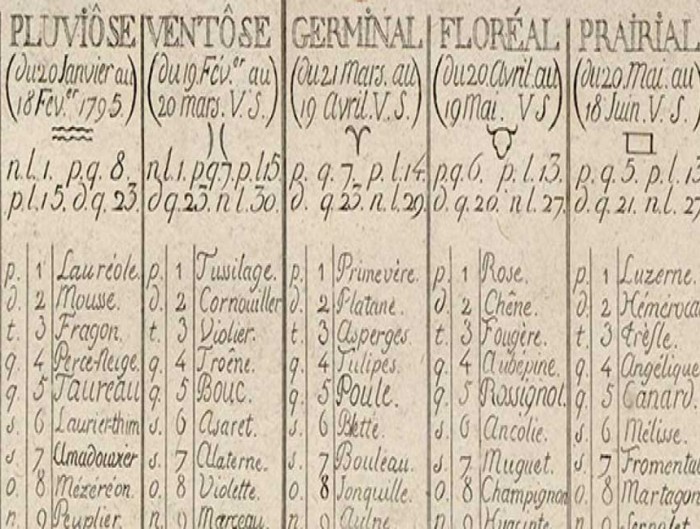 PLUVIÔSE VENTÔSE GERMINAL FLORÉAL PRAIRIAL
(du 20 Janvier au (du 19. Fév.er au) (du 21 Mars. au) (du 20. Avril. au (du 20. Mai. au)
18 Fév.er 1795.) 20 mars. V.S.) 19 Avril. V.S.) 19 Mai. V S) 18 Juin. V. S.)
n.l. 1. p.q. 8. n.l. 1. p.q 7. p.l. 15. p. q. 7. p. l. 14. p.q. 6. p. l. 13. p. q. 5. p. l. 13
p.l. 15. d.q. 23. d.q. 23. n.l. 30. d. q. 23. n.l. 29. d. q. 20. n.l. 27. d. q. 21. n.l. 27
p. 1 Lauréole. p. 1 Tussilage. p. 1 Primevère. p. 1 Rose. p. 1 Luzerne.
d. 2 Mousse. d. 2 Cornouiller d. 2 Platane. d. 2 Chêne. d. 2 Hémérocal
t. 3 Fragon. t. 3 Violier. t. 3 Asperges. t. 3 Fougère. t. 3 trèfle.
q. 4 Perce-Neige. q. 4 Troêne. q. 4 Tulipes. q. 4 Aubépine. q. 4 Angélique
q. 5 Taureau q. 5 Bouc. q. 5 Poule. q. 5 Rossignol. q. 5 Canard.
s. 6 Laurier-thim s. 6 Asaret. s. 6 Blette. s. 6 Ancolie. s. 6 Mélisse.
s. 7 Amadouvier s. 7 Alaterne. s. 7 Bouleau. s. 7 Muguet. s. 7 Fromental
o. 8 Mézéréon. o. 8 Violette. o. 8 Jonquille. o. 8 Champignon o. 8 Martagon
n. 9 Peuplier. n. 9 Marceau. n. 9 Aulne. n. 9 Hyacinte. n. 9